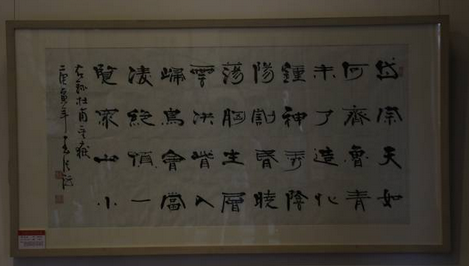 岱宗夫如
何齊魯青
未了造化
鍾神秀陰
陽割昏曉
蕩胸生層
雲決眥入
歸鳥會當
凌絕頂一
覽衆山小
右錄杜甫望嶽
庚寅年